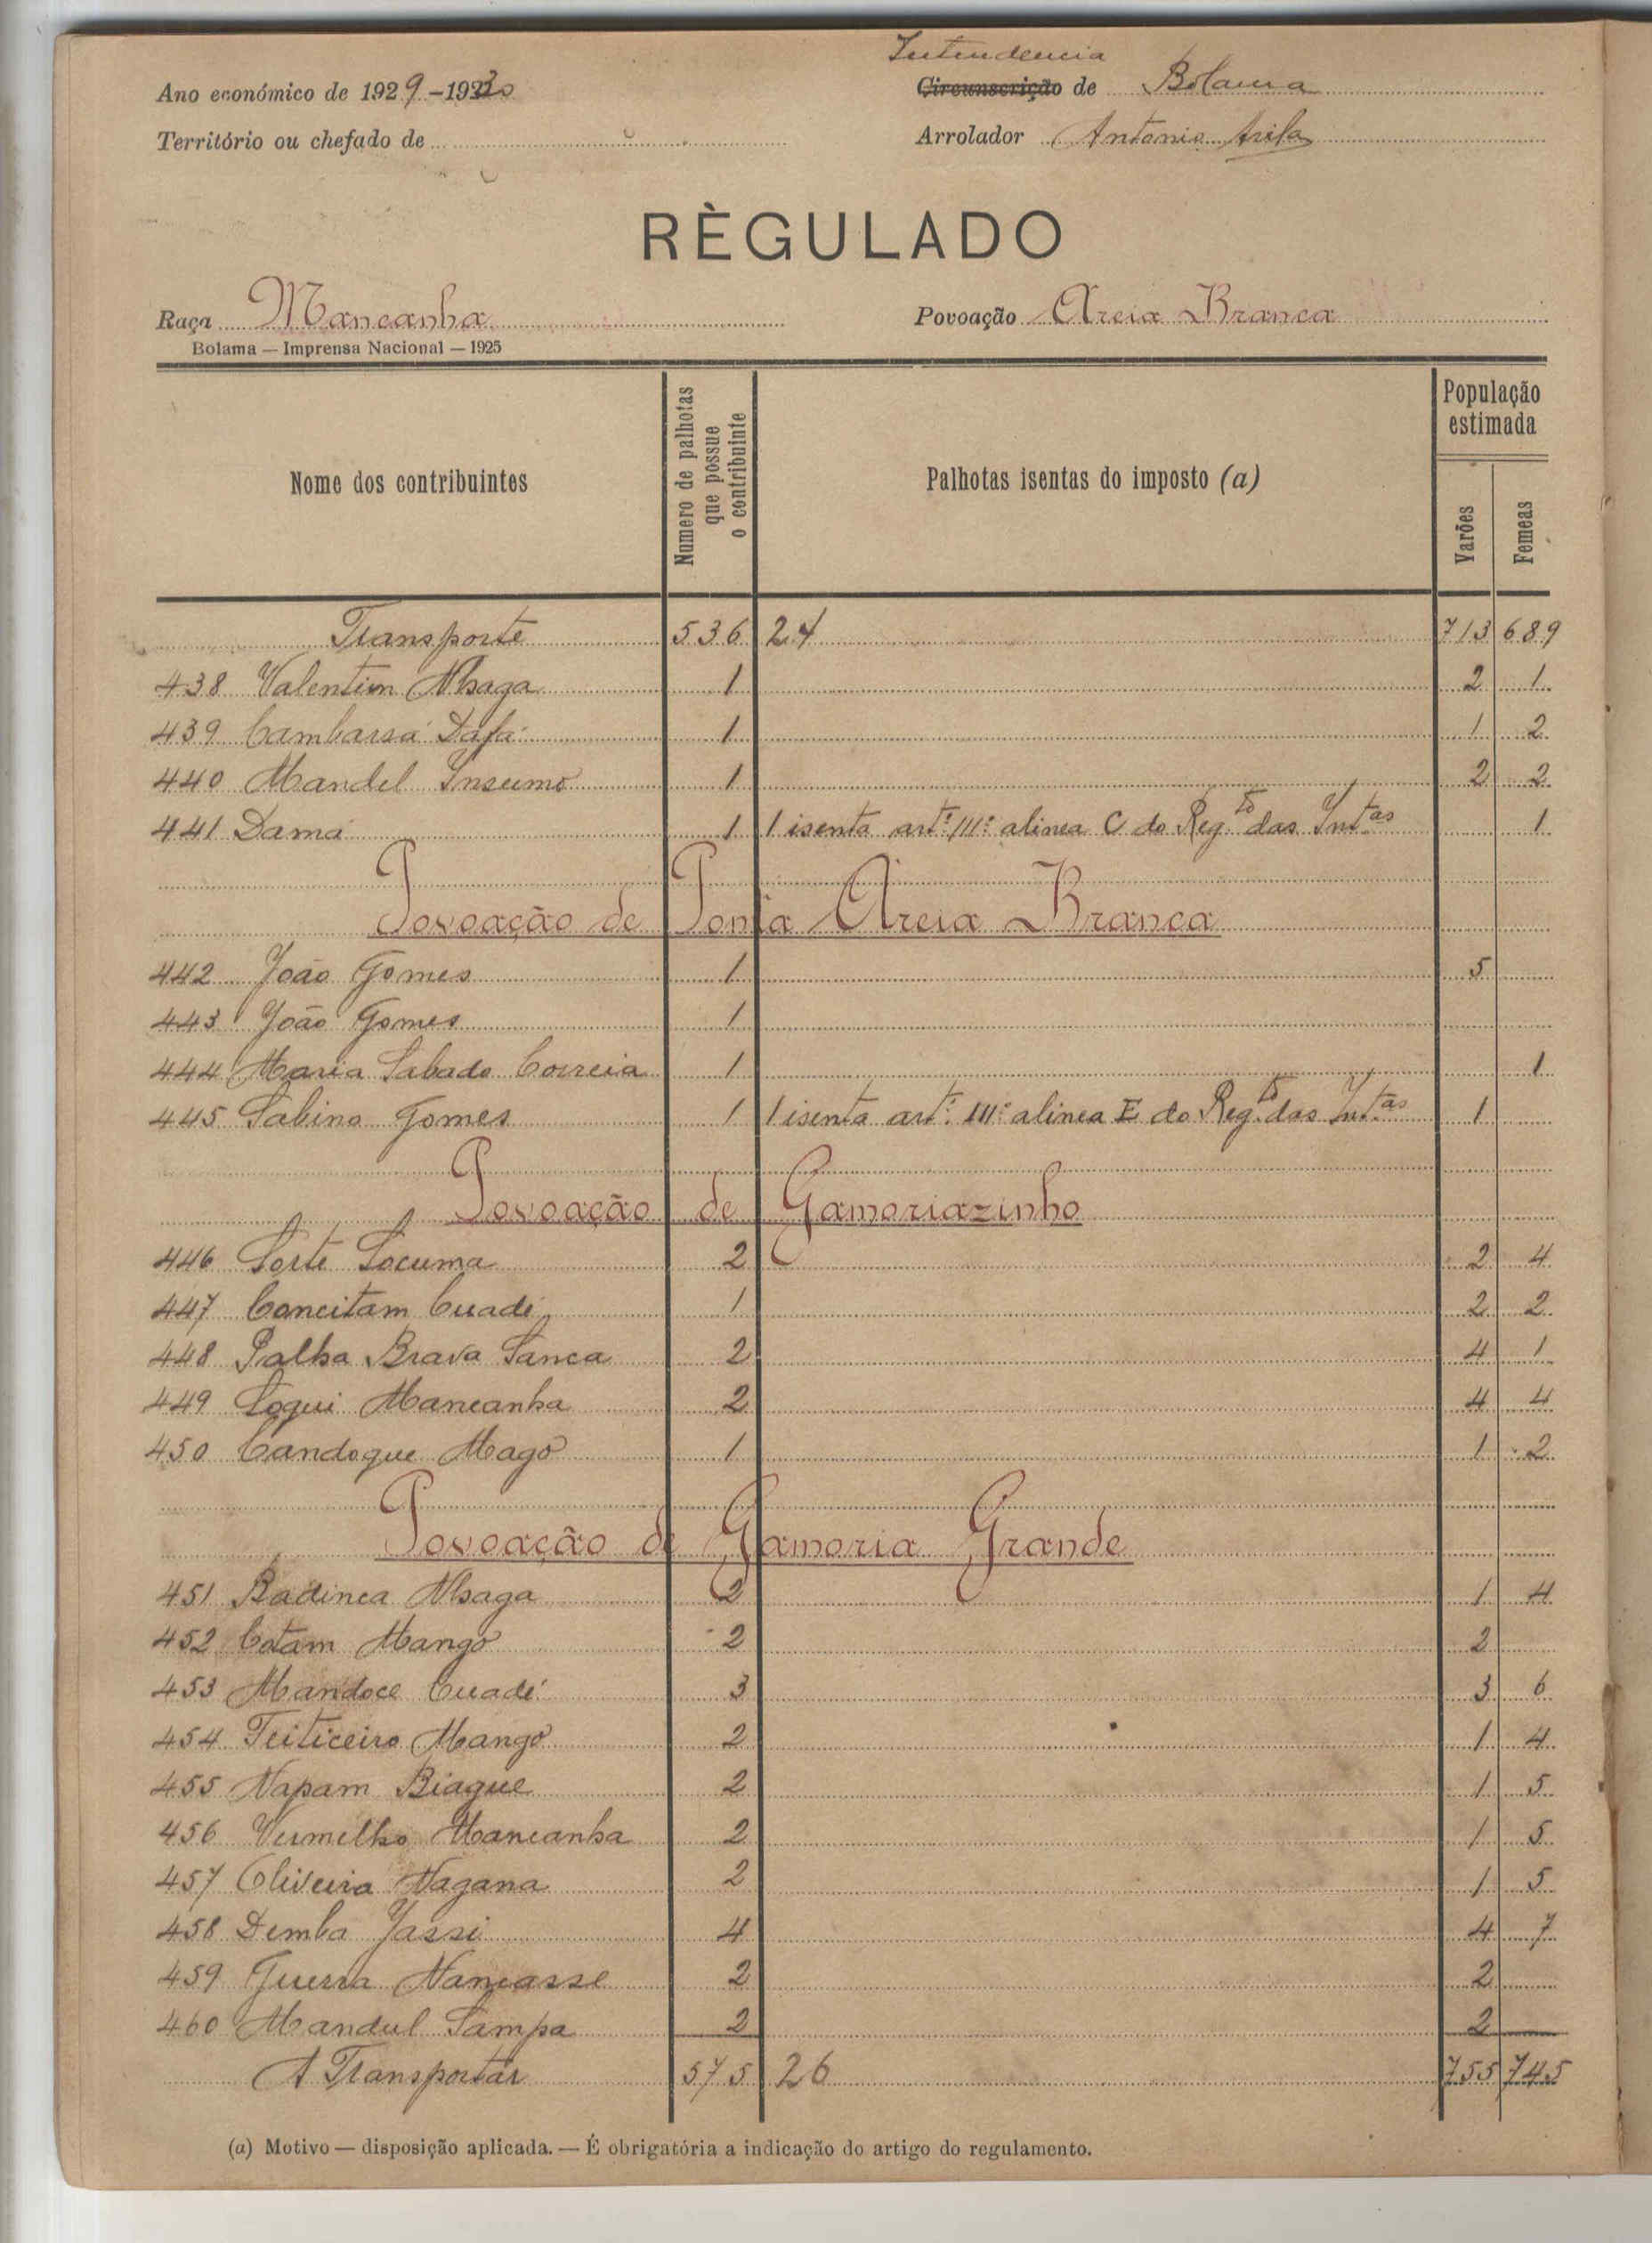 Intendencia
Ano económico de 1929-1930
Circunscrição de Bolama
Território ou chefado de
Arrolador Antonio
RÈGULADO
Raça Mancanha
Povoação Areia Branca
Bolama — Imprensa Nacional — 1925
Nome dos contribuintes
Numero de palhotas que possue o contribuinte
Palhotas isentas do imposto (a)
População estimada
Varões
Femeas
Transporte 536 24 713 689
438 Valentim Nhaga 1 2 1
439 Cambarsá Dafá 1 1 2
440 Mandel Insumo 1 2 2
441 Damá 1 1 isenta artº 111º alinea C do Reg.to das Int.as 1
Povoação de Ponta Areia Branca
442 João Gomes 1 5
443 João Gomes 1
444 Maria Sabado Correia 1 1
445 Sabino Gomes 1 1 isenta artº 111º alinea E do Reg.to das Int.as 1
Povoação de Gamoriazinho
446 Sorte Socuma 2 2 4
447 Concitam Cuadé 1 2 2
448 Palha Brava Sanca 2 4 1
449 Soqui Mancanha 2 4 4
450 Candoque Mago 1 1 2
Povoação de Gamoria Grande
451 Badinca Nhaga 2 1 4
452 Cotam Mango 2 2
453 Mandoce Cuadé 3 3 6
454 Feiticeiro Mango 2 1 4
455 Napam Biague 2 1 5
456 Vermelho Mancanha 2 1 5
457 Oliveira Nagana 2 1 5
458 Demba Jassi 4 4 7
459 Guerra Nancasse 2 2
460 Mandul Sampa 2 2
A Transportar 575 26 755 745
(a) Motivo — disposição aplicada. — É obrigatória a indicação do artigo do regulamento.